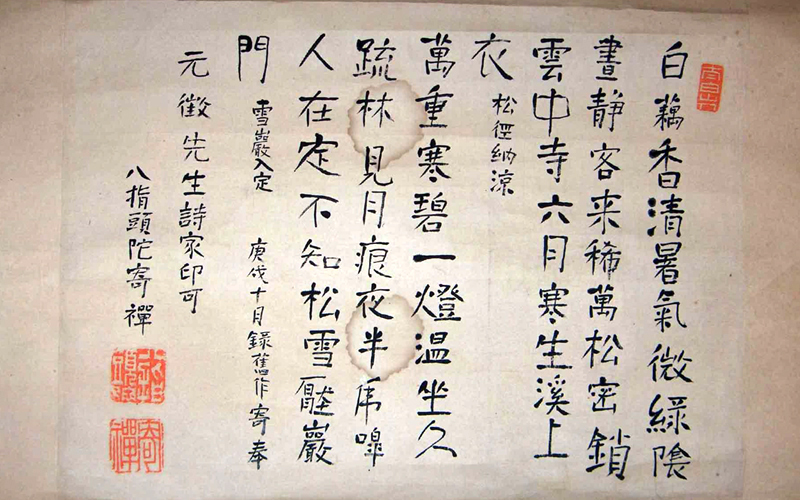 白藕香清暑氣微綠陰
晝靜客来稀萬松密鎖
雲中寺六月寒生溪上
衣 松徑納涼
萬重寒碧一燈温坐久
疏林見月痕夜半虎嘷
人在定不知松雪壓巖
門 雪巖入定 庚戌十月錄舊作寄奉
元徵先生詩家印可
八指頭陀寄禪
寄禪